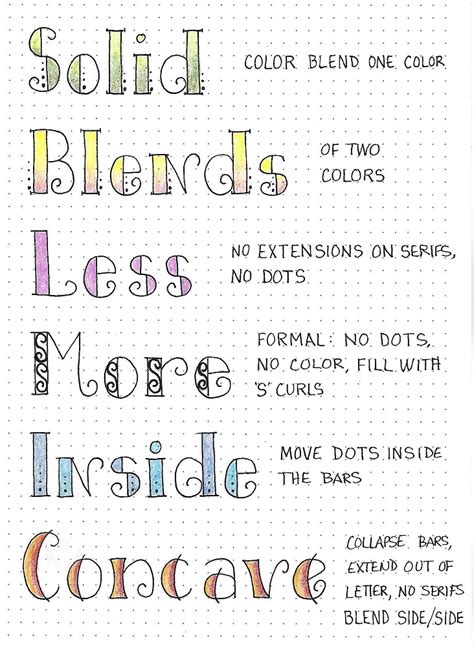 Solid
COLOR BLEND ONE COLOR
Blends
OF TWO
COLORS
Less
NO EXTENSIONS ON SERIFS,
NO DOTS
More
FORMAL: NO DOTS,
NO COLOR, FILL WITH
'S' CURLS
Inside
MOVE DOTS INSIDE
THE BARS
Concave
COLLAPSE BARS,
EXTEND OUT OF
LETTER, NO SERIFS
BLEND SIDE/SIDE